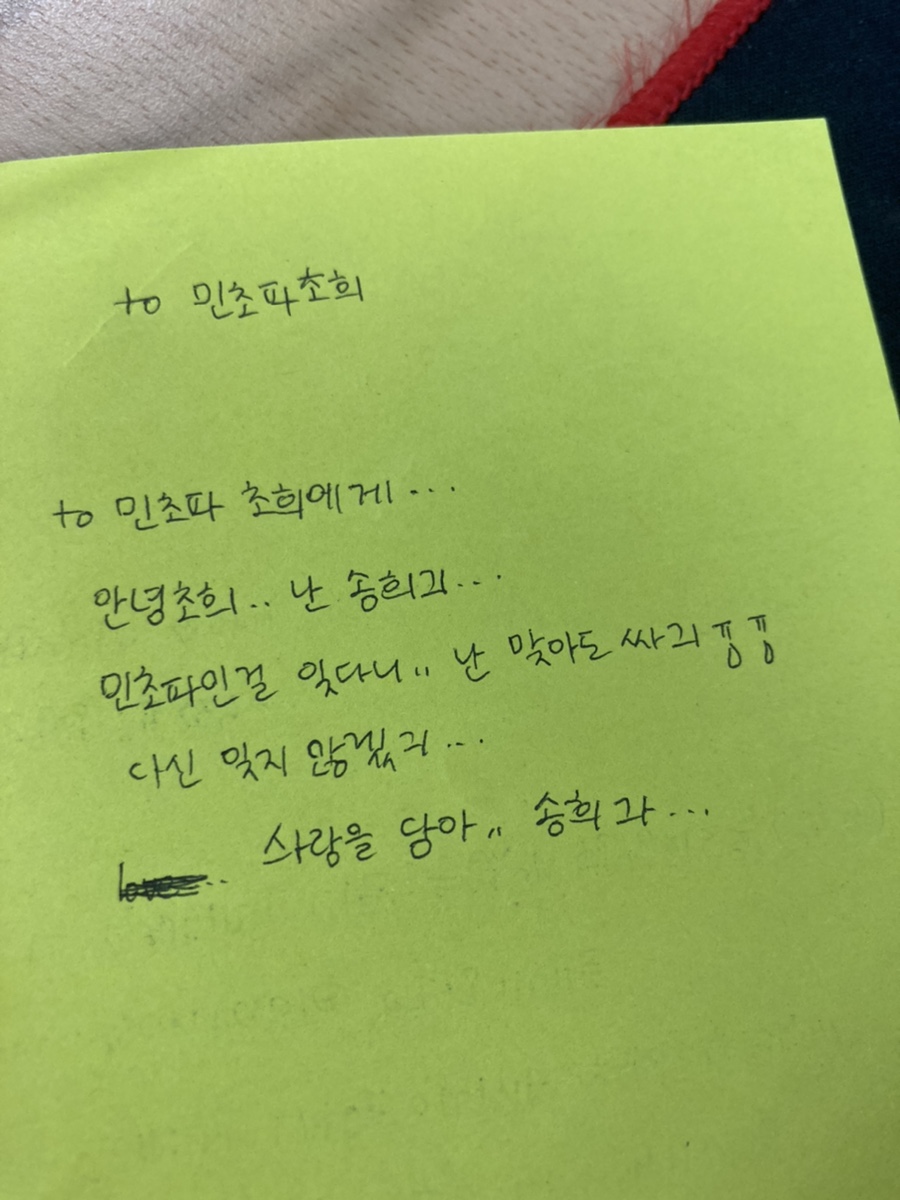 to 민초파초희
to 민초파 초희에게...
안녕초희.. 난 송희긔...
민초파인걸 잊다니,, 난 맞아도 싸긔ㅠㅠ
다신 잊지 않겠긔...
사랑을 담아,, 송희가...